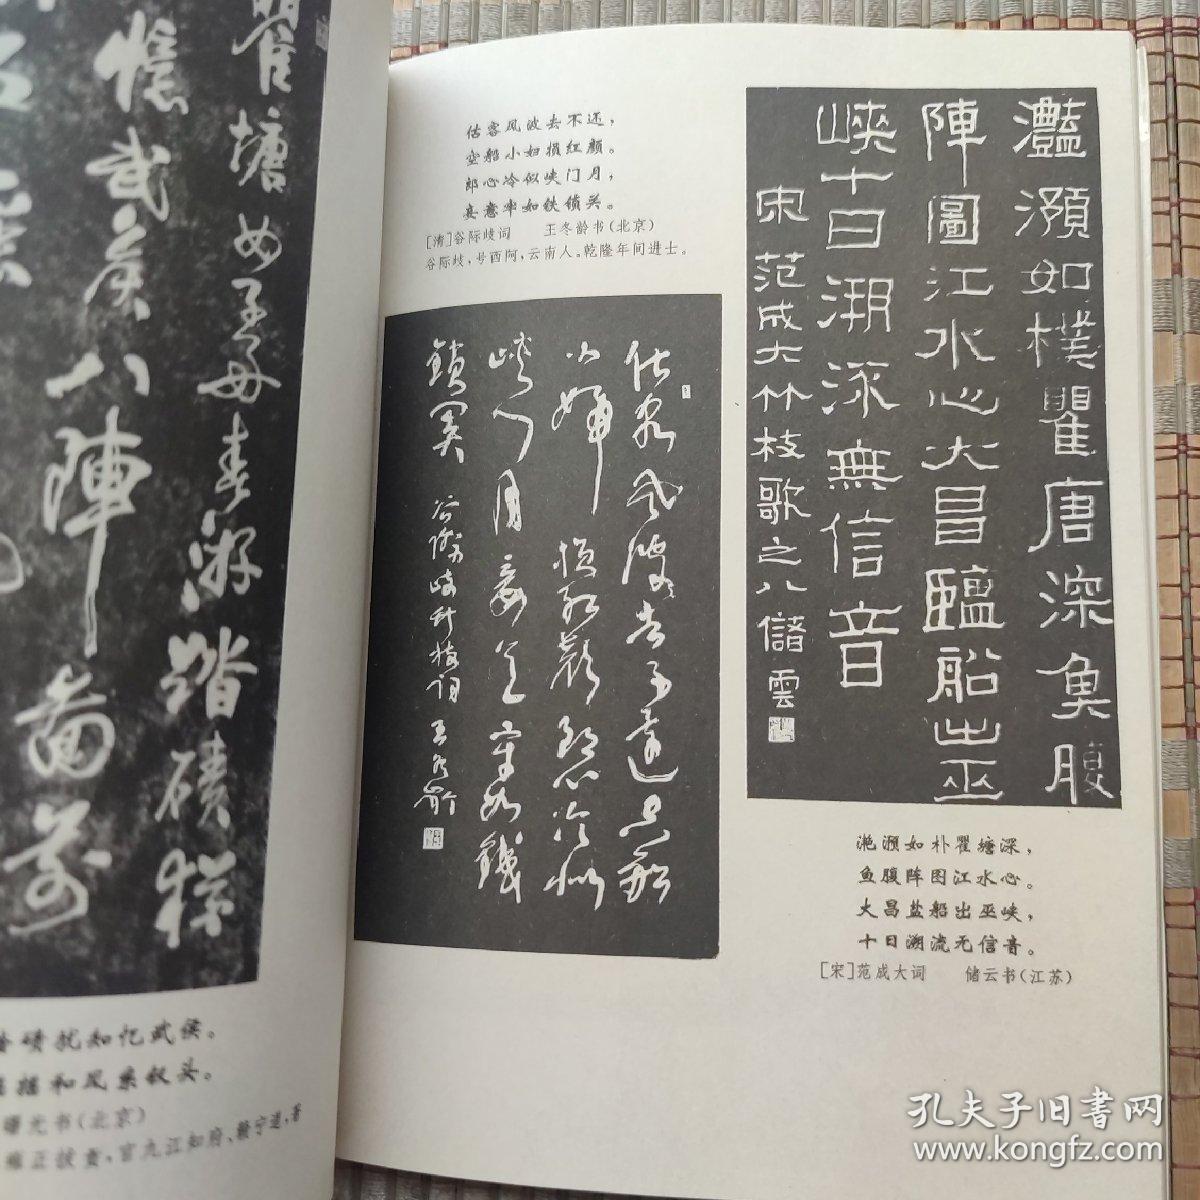 瞿塘女娃女春游踏碛棌
憶武侯八陣圖前
峪碛犹知忆武侯。
和风系钗头。
曙光书(北京)
雍正拔贡，官九江知府、赣宁道，著
估客风波去不还，
空船小妇损红颜。
郎心冷似峡门月，
妾意牢如铁锁关。
[清]谷际岐词　王冬龄书(北京)
谷际岐，号西阿，云南人。乾隆年间进士。
估客風波去不還空船
小婦損紅顏郎心冷似
峽門月妾意牢如鐵
鎖關　谷際岐竹枝詞　王冬齡
灩澦如樸瞿唐深魚腹
陣圖江水心大昌鹽船出巫
峽十日溯流無信音
宋范成大竹枝歌之八儲雲
滟滪如朴瞿塘深，
鱼腹阵图江水心。
大昌盐船出巫峡，
十日溯流无信音。
[宋]范成大词　储云书(江苏)
孔夫子旧书网
www.kongfz.com